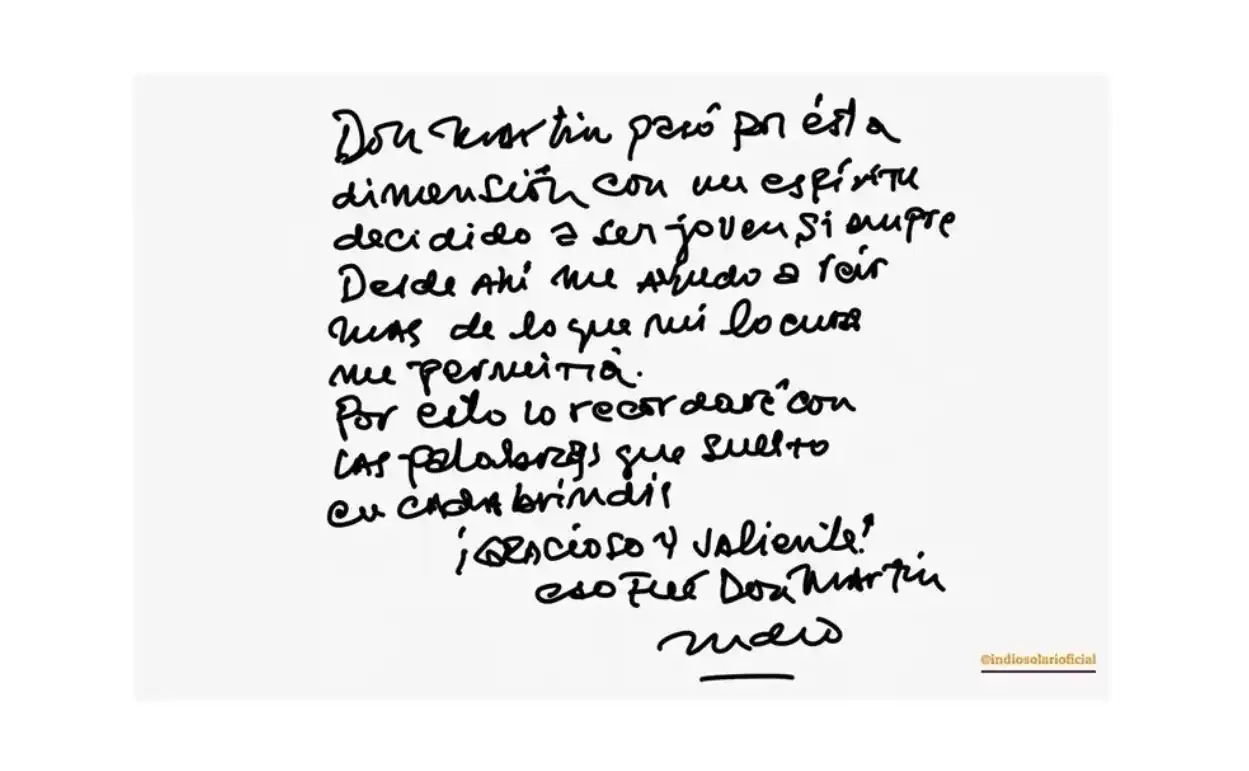 Don Martin pasó por ésta
dimensión con un espíritu
decidido a ser joven siempre
Desde Ahí me ayudo a reir
mas de lo que mi locura
me permitía.
Por esto lo recordaré con
las palabras que suelto
en cada brindis
¡GRACIOSO Y VALIENTE!
eso Fué Don Martin
Indio
@indiosolarioficial